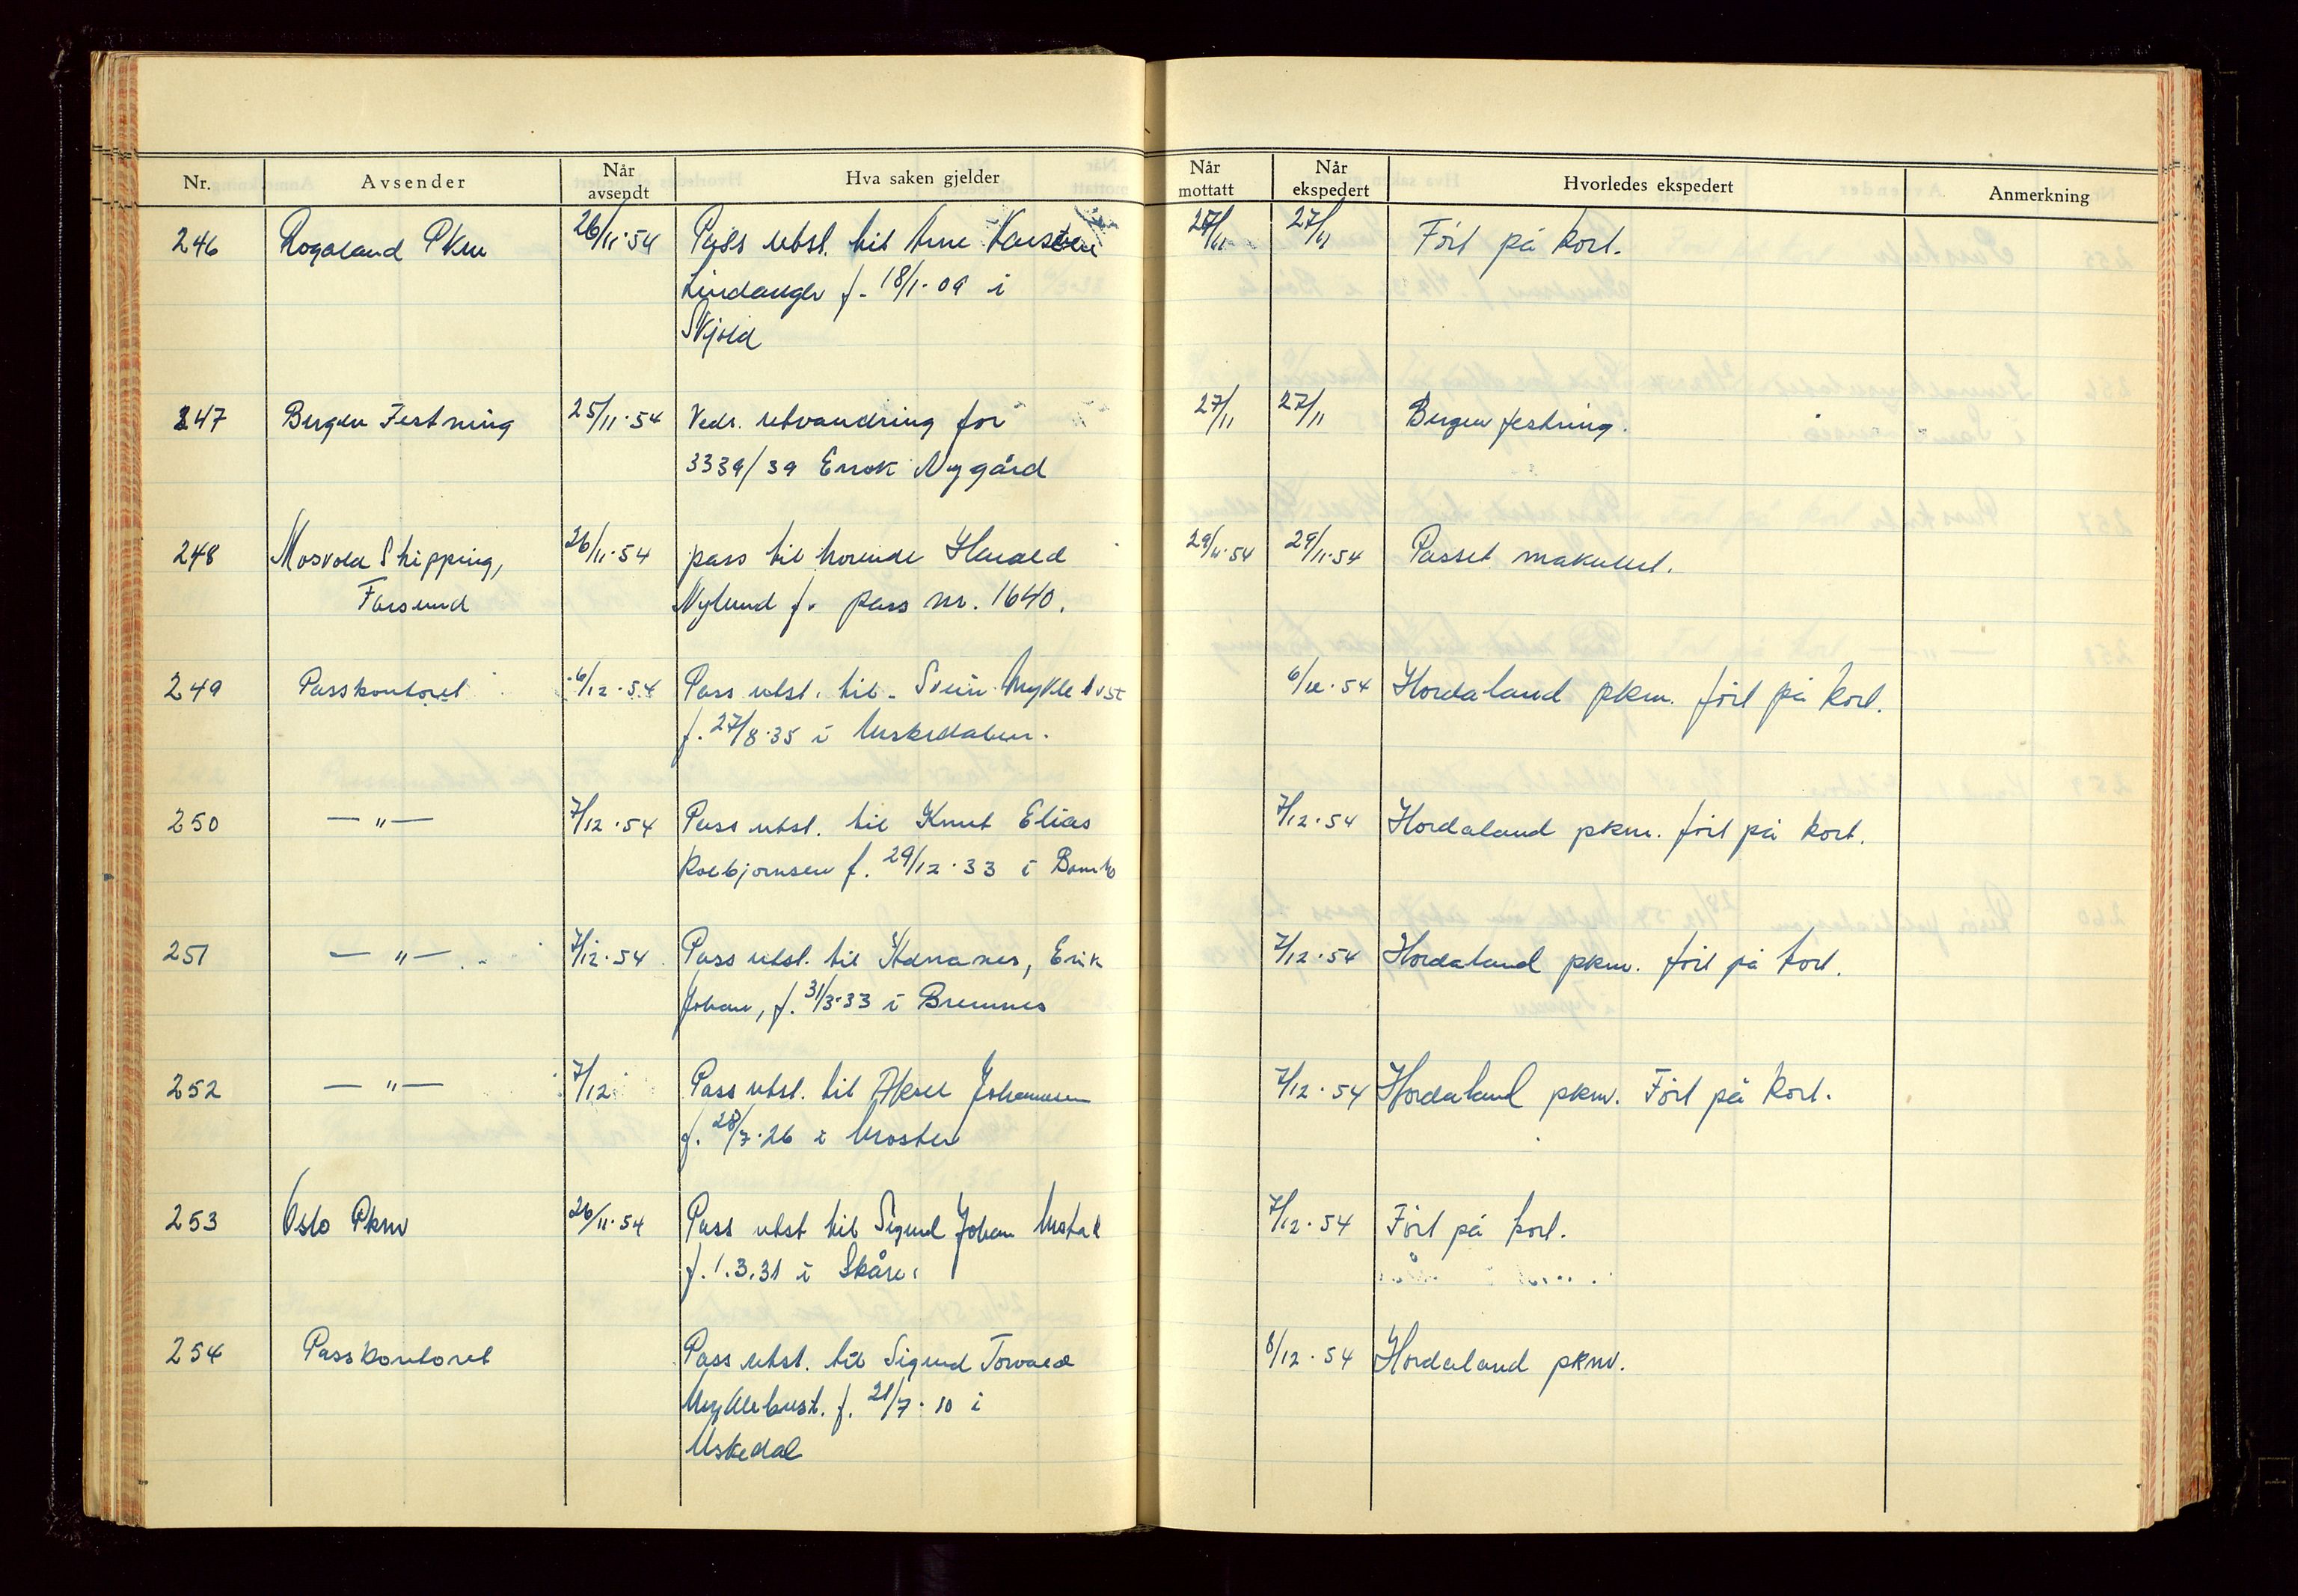 Nr.
Avsender
Når avsendt
Hva saken gjelder
Når mottatt
Når ekspedert
Hvorledes ekspedert
Anmerkning
246 Rogaland Pkm 26/11·54 Pass utst. til Arne Karsten 27/11 27/11 Ført på kort.
Lindanger f. 18/1·09 i
Skjold
247 Bergen Festning 25/11·54 Vedr. utvandring for 27/11 27/11 Bergen festning.
3339/39 Enok Nygård
248 Mosvold Shipping, 26/11·54 pass tilhørende Harald 29/11·54 29/11·54 Passet makulert.
Farsund Nylund f. pass nr. 1640.
249 Passkontoret 6/12·54 Pass utst. til Svein Myklebust 6/12·54 Hordaland pkm. ført på kort.
f. 27/8·35 i Uskedalen.
250 — " — 7/12·54 Pass utst. til Knut Elias 7/12·54 Hordaland pkm. ført på kort.
Kolbjørnsen f. 29/12·33 i
251 — " — 7/12·54 Pass utst. til Erik 7/12·54 Hordaland pkm. ført på kort.
Johan, f. 31/3·33 i Bremnes
252 — " — 7/12 Pass utst. til Aksel Johannesen 7/12·54 Hordaland pkm. Ført på kort.
f. 28/7·26 i Moster
253 Oslo Pkm 26/11·54 Pass utst til Sigurd Johan 7/12·54 Ført på kort.
f. 1.3.31 i Skåre.
254 Passkontoret Pass utst. til Sigurd Torvald 8/12·54 Hordaland pkm.
Myklebust. f. 21/7·10 i
Uskedal